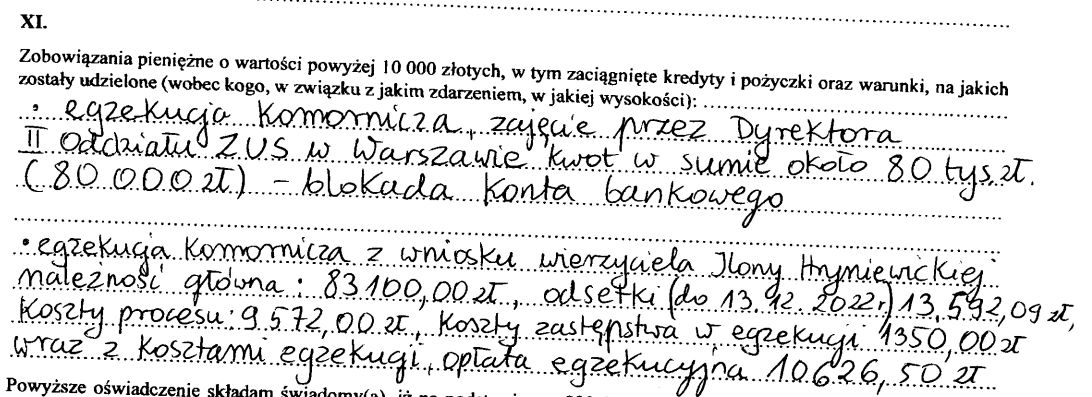 XI.
Zobowiązania pieniężne o wartości powyżej 10 000 złotych, w tym zaciągnięte kredyty i pożyczki oraz warunki, na jakich
zostały udzielone (wobec kogo, w związku z jakim zdarzeniem, w jakiej wysokości):
• egzekucja komornicza, zajęcie przez Dyrektora
II Oddziału ZUS w Warszawie kwot w sumie około 80 tys. zł.
(80 000 zł) - blokada konta bankowego
• egzekucja komornicza z wniosku wierzyciela Ilony Hryniewickiej
należność główna: 83100,00 zł, odsetki (do 13.12.2022r.) 13.592,09 zł,
Koszty procesu: 9.572,00 zł, Koszty zastępstwa w egzekucji 1350,00 zł
wraz z kosztami egzekucji, opłata egzekucyjna 10626,50 zł
Powyższe oświadczenie składam świadomy(a), iż na podstawie